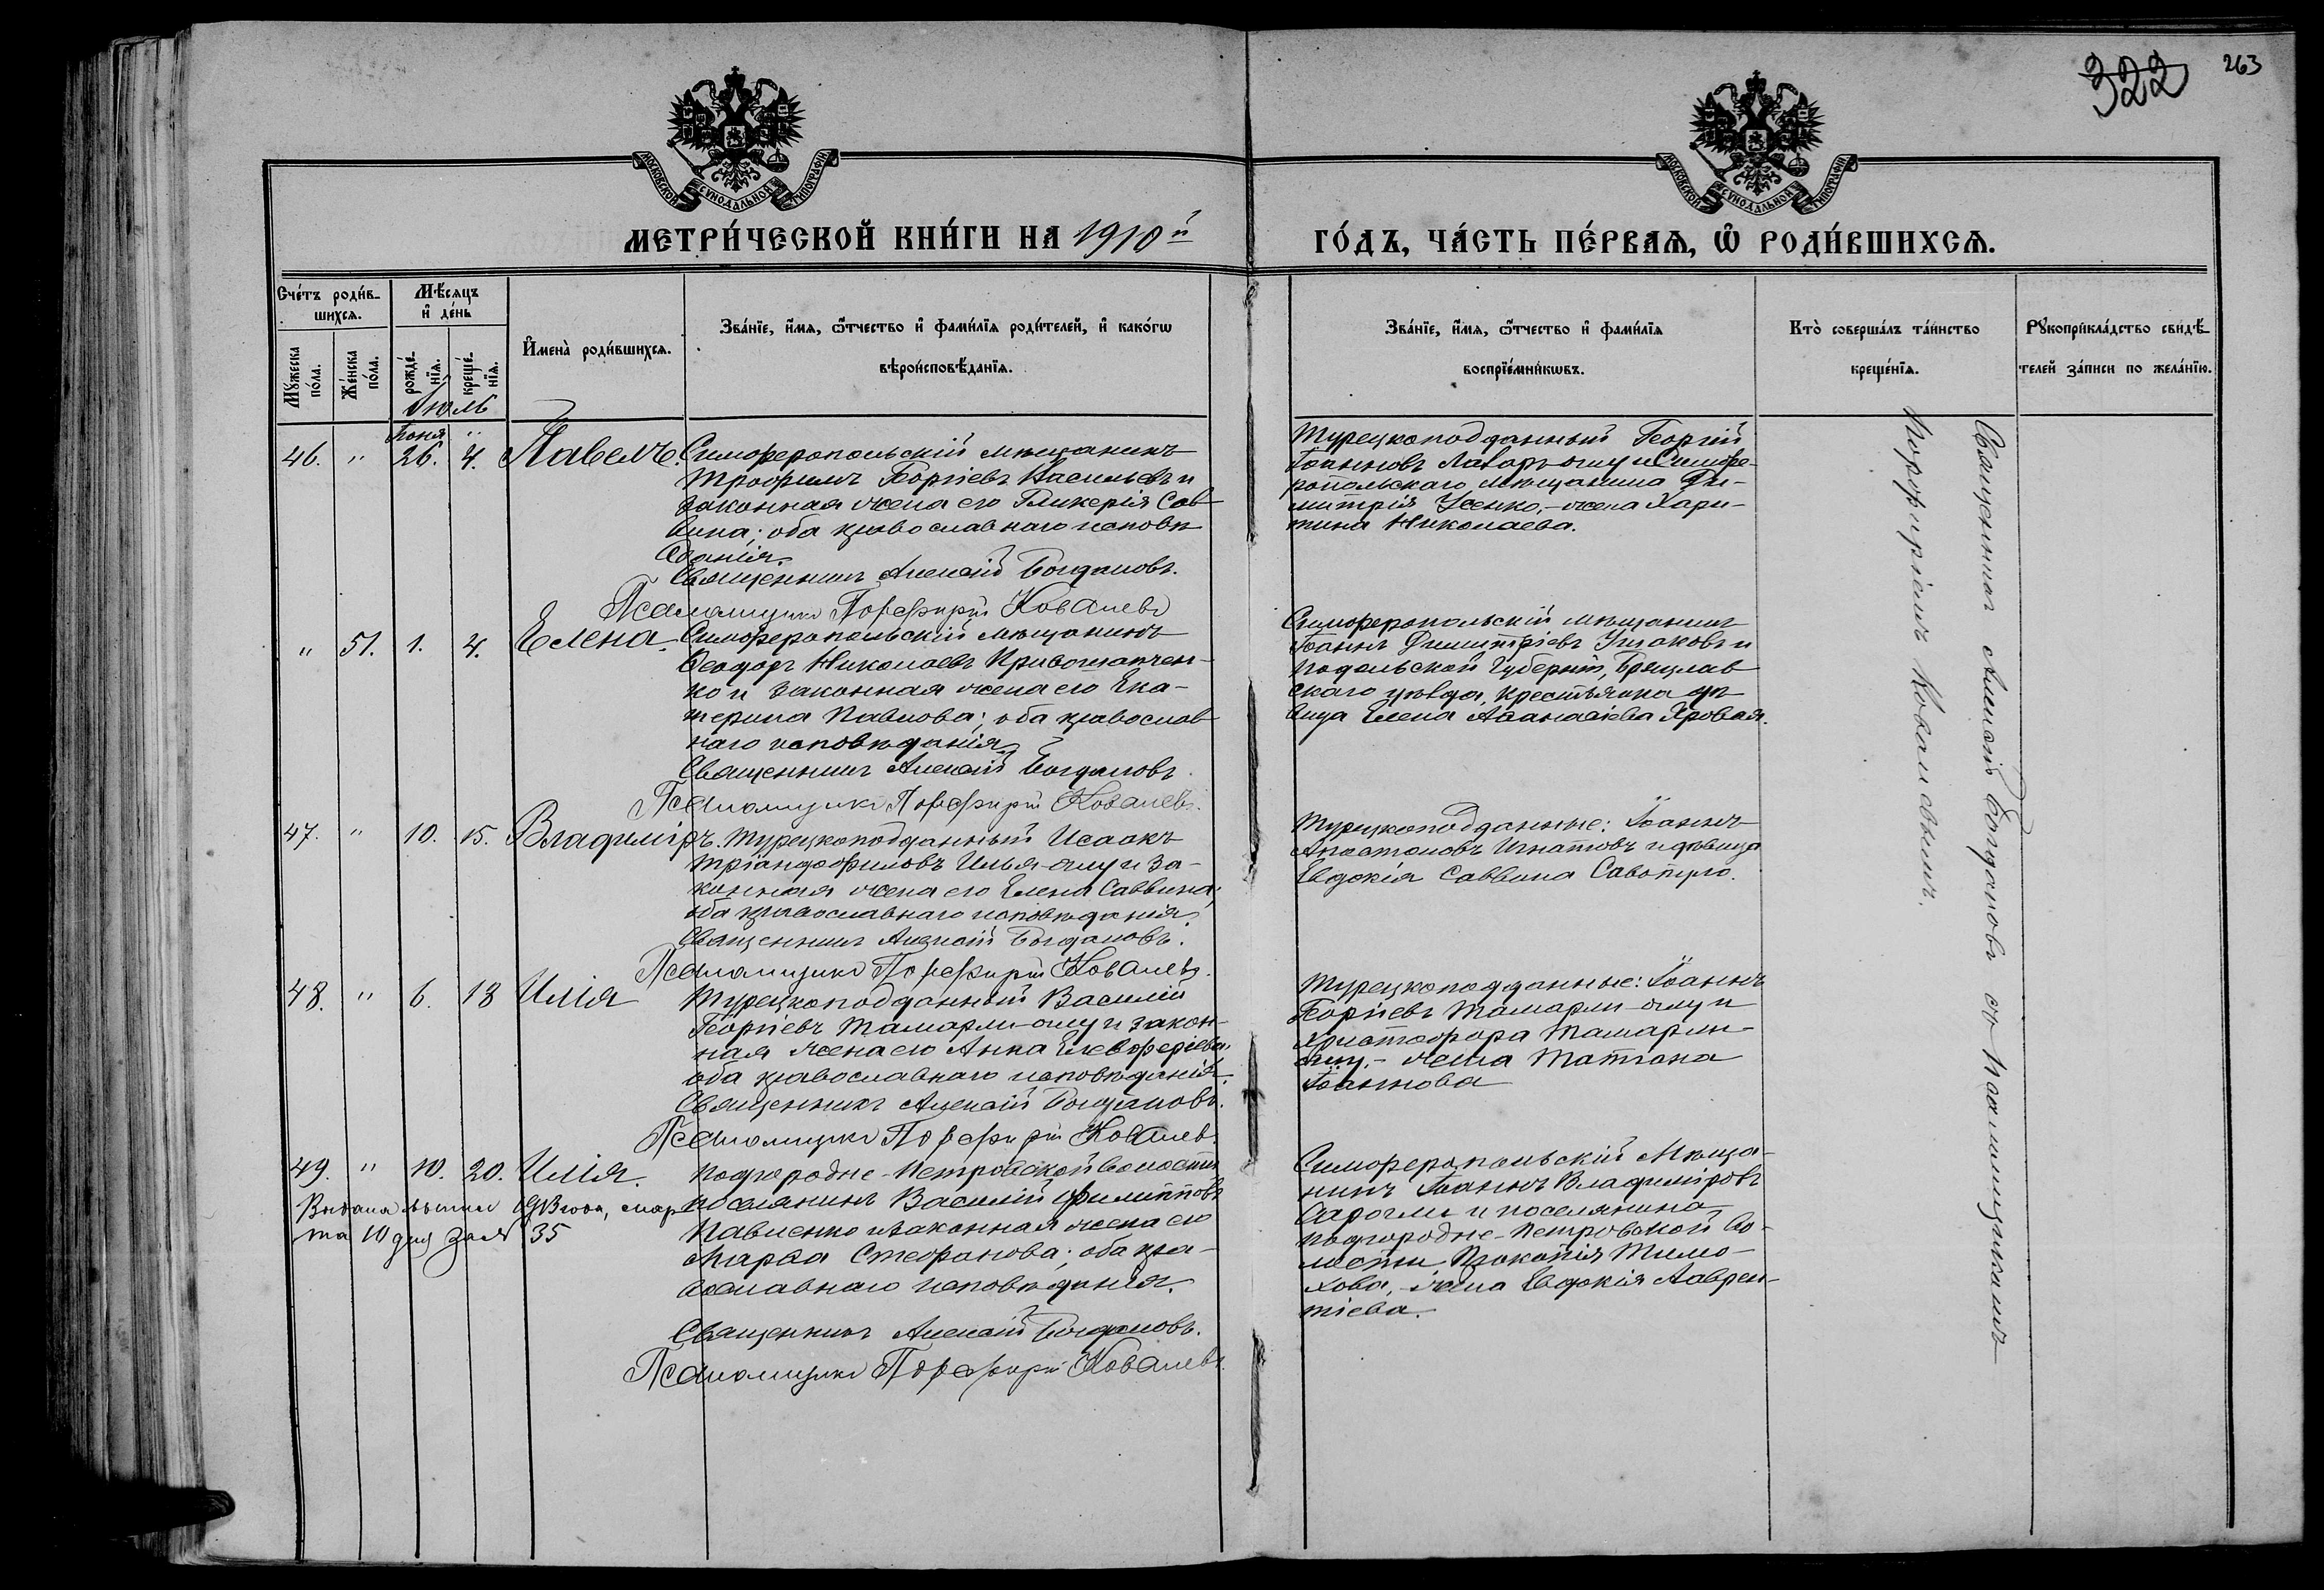 322
263
МОСКОВСКОЙ СѴНОДАЛЬНОЙ ТИПОГРАФІИ
МОСКОВСКОЙ СѴНОДАЛЬНОЙ ТИПОГРАФІИ
МЕТРИ́ЧЕСКОЙ КНИ́ГИ НА 1910й
ГО́ДЪ, ЧА́СТЬ ПЕ́РВАѦ, Ѡ҆ РОДИ́ВШИХСѦ.
Сче́тъ роди́в-
шихсѧ.
Мꙋ́жеска по́ла.
Же́нска по́ла.
Мѣ́сяцъ
и҆ де́нь
рожде́-
нїѧ.
креще́-
нїѧ.
И҆мена̀ роди́вшихсѧ.
Зва́нїе, и҆́мѧ, ѻ҆́тчество и҆ фами́лїѧ роди́телей, и҆ како́гѡ
вѣроисповѣ́данїѧ.
Зва́нїе, и҆́мѧ, ѻ҆́тчество и҆ фами́лїѧ
воспрїе́мникѡвъ.
Кто̀ соверша́лъ та́инство
креще́нїѧ.
Рꙋкоприкла́дство свидѣ́-
телей за́писи по жела́нїю.
Іюль
Іюня "
46. " 26. 4. Павелъ. Симферопольскій мѣщанинъ
Трофимъ Георгіевъ Васильевъ и
законная жена его Гликерія Сав-
вина; оба православнаго исповѣ-
данія.
Священникъ Алексій Богдановъ.
Псаломщикъ Порфирій Ковалевъ
Турецкоподданный Георгій
Іоанновъ Лазарь-оглу и Симфе-
ропольскаго мѣщанина Ди-
митрія Усенко, - жена Хари-
тина Николаева.
" 51. 1. 4. Елена. Симферопольскій мѣщанинъ
Ѳеодоръ Николаевъ Кривошапчен-
ко и законная жена его Ека-
терина Павлова; оба православ-
наго исповѣданія.
Священникъ Алексій Богдановъ.
Псаломщикъ Порфирій Ковалевъ.
Симферопольскій мѣщанинъ
Іоаннъ Димитріевъ Ушаковъ и
Подольской губерніи, Брацлав-
скаго уѣзда, крестьянка дѣ-
вица Елена Аѳанасіева Яровая.
47. " 10. 15. Владиміръ. Турецкоподданный Исаакъ
Тріандофиловъ Илья-оглу и за-
конная жена его Елена Саввина;
оба православнаго исповѣданія.
Священникъ Алексій Богдановъ.
Псаломщикъ Порфирій Ковалевъ.
Турецкоподданные: Іоаннъ
Апостоловъ Игнатовъ и дѣвица
Евдокія Саввина Савопуло.
48. " 6. 18 Илія Турецкоподданный Василій
Георгіевъ Тамарли-оглу и закон-
ная жена его Анна Елевферіева;
оба православнаго исповѣданія.
Священникъ Алексій Богдановъ.
Псаломщикъ Порфирій Ковалевъ.
Турецкоподданные: Іоаннъ
Георгіевъ Тамарли-оглу и
Христофора Тамарли-
оглу, - жена Татіана
Іоаннова
49. " 10. 20. Илія. Подгородне-Петровской волости
поселянинъ Василій Филипповъ
Павленко и законная жена его
Марѳа Стефанова; оба пра-
вославнаго исповѣданія.
Священникъ Алексій Богдановъ.
Псаломщикъ Порфирій Ковалевъ.
Выдана мар-
та 10 дня за № 35
Симферопольскій Мѣща-
нинъ Іоаннъ Владиміровъ
и поселянина
Подгородне-Петровской во-
лости Прокопія Тимо-
хова, - жена Евдокія Лаврен-
тіева.
Священникъ Алексій Богдановъ съ псаломщикомъ
Порфиріемъ Ковалевымъ.